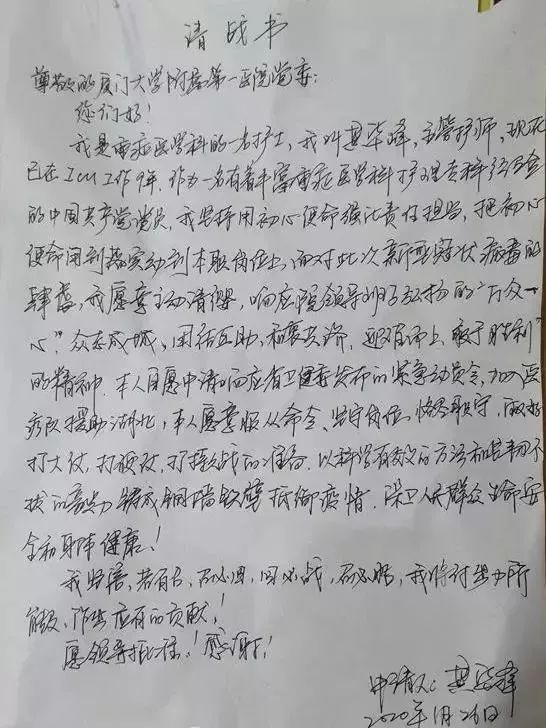 请战书
尊敬的厦门大学附属第一医院党委:
您们好!
我是重症医学科的一名护士,我叫 华峰,主管护师,现
已在ICU工作9年.作为一名有着丰富重症医学科护理专科经验
的中国共产党党员,我坚持用初心使命强化责任担当,把初心
使命用到 实动到本职岗位上,面对此次新型冠状病毒的
肆虐,我愿意主动请缨,响应院领导 弘扬的“万众一
心”众志成城、团结互助、和衷共济、迎难而上、敢于胜利”
的精神.本人自愿申请响应省卫健委发布的紧急动员令,加入医
疗队援助湖北,本人愿意服从命令、坚守岗位、恪尽职守,做好
打大仗,打硬仗,打持久战的准备.以科学有效的方法和坚韧不
拔的 铸成铜墙铁壁抵御疫情.保卫人民群众生命安
全和身体健康!
我坚信,若有召,召必回,回必战,战必胜,我将付出力所
能及,作出应有的贡献!
愿领导批准!感谢!
申请人: 华峰
2020年1月26日